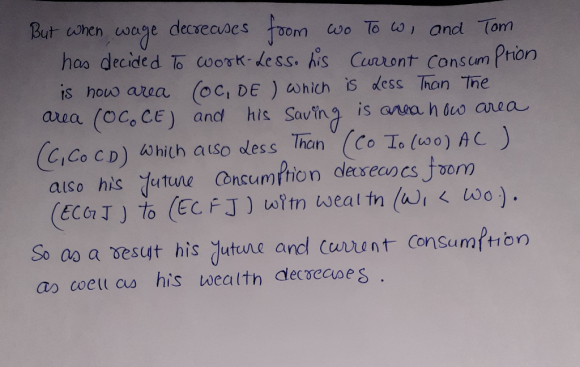 But when wage decreases from wo To w1 and Tom
has decided To work-less. his Current Consumption
is now area (OC1 DE) which is Less Than The
area (OCoCE) and his Saving is area now area
(C1Co CD) which also Less Than (Co Io (wo) AC)
also his future Consumption decreases from
(ECGIJ) to (ECFJ) with wealth (W1 < Wo).
So as a result his future and current consumption
as well as his wealth decreases.